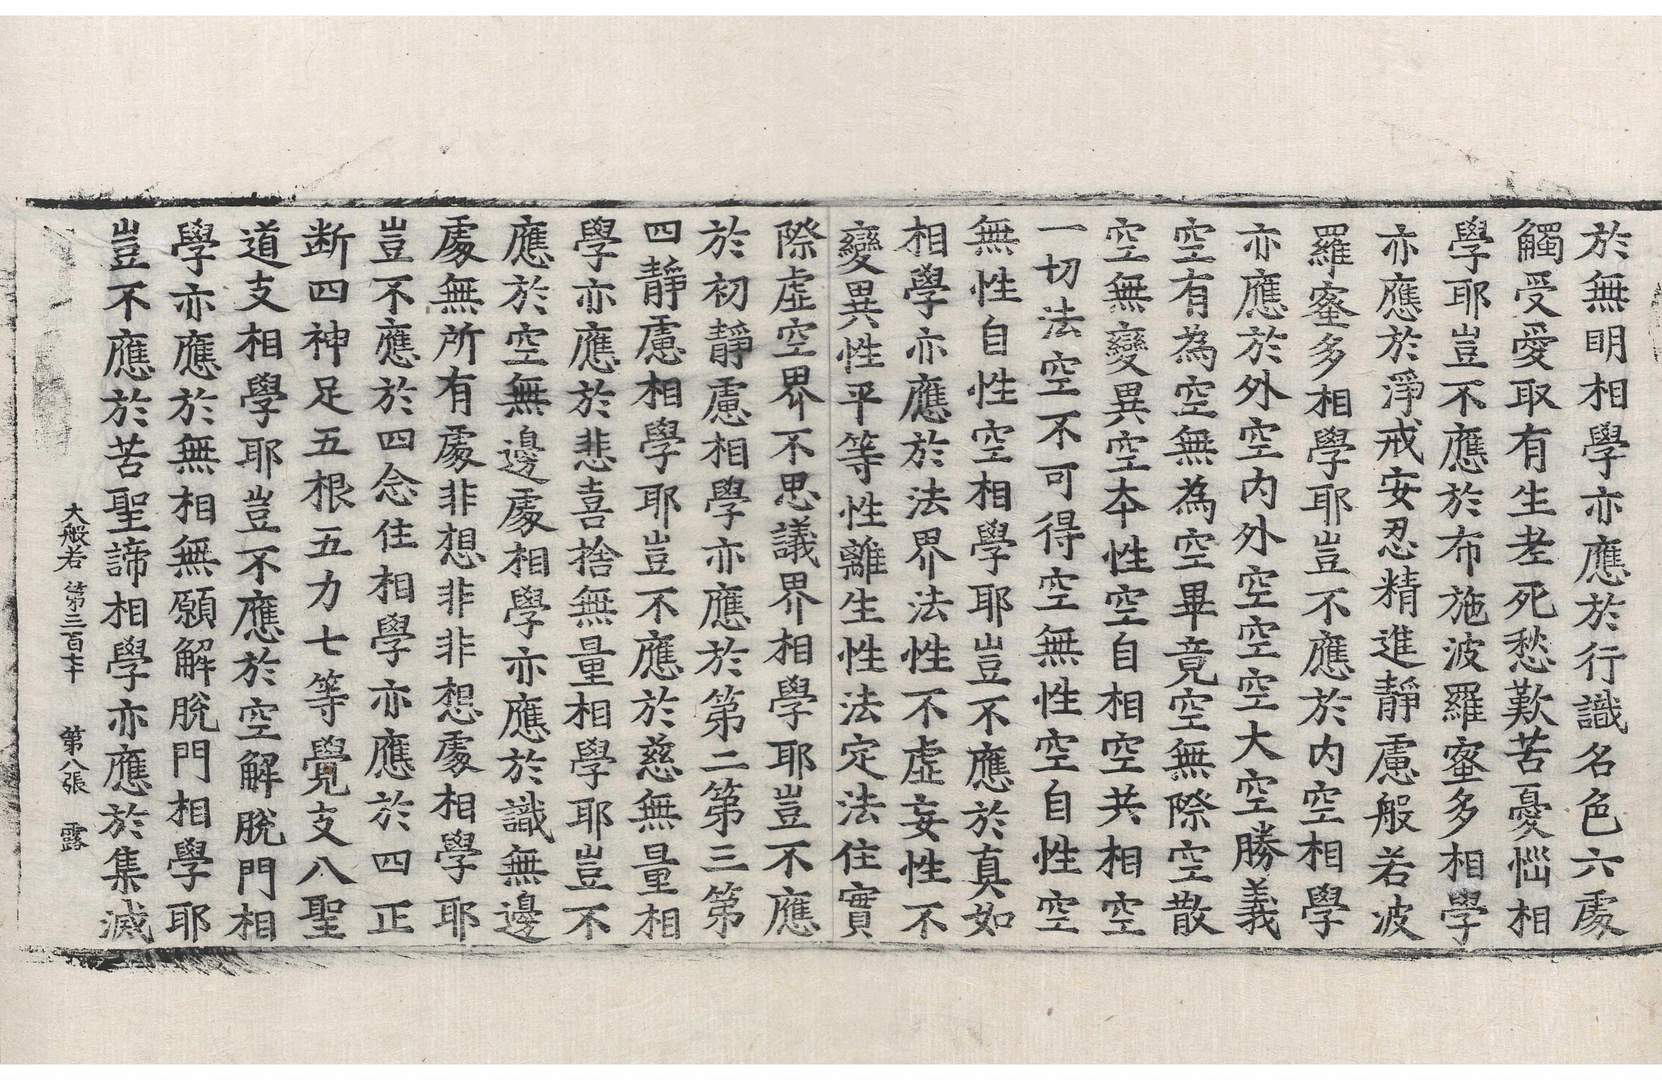 於無明相學亦應於行識名色六處
觸受愛取有生老死愁歎苦憂惱相
學耶豈不應於布施波羅蜜多相學
亦應於淨戒安忍精進靜慮般若波
羅蜜多相學耶豈不應於内空相學
亦應於外空内外空空空大空勝義
空有為空無為空畢竟空無際空散
空無變異空本性空自相空共相空
一切法空不可得空無性空自性空
無性自性空相學耶豈不應於真如
相學亦應於法界法性不虛妄性不
變異性平等性離生性法定法住實
際虛空界不思議界相學耶豈不應
於初靜慮相學亦應於第二第三第
四靜慮相學耶豈不應於慈無量相
學亦應於悲喜捨無量相學耶豈不
應於空無邊處相學亦應於識無邊
處無所有處非想非非想處相學耶
豈不應於四念住相學亦應於四正
断四神足五根五力七等覺支八聖
道支相學耶豈不應於空解脫門相
學亦應於無相無願解脫門相學耶
豈不應於苦聖諦相學亦應於集滅
大般若 第三百卆 第八張 露